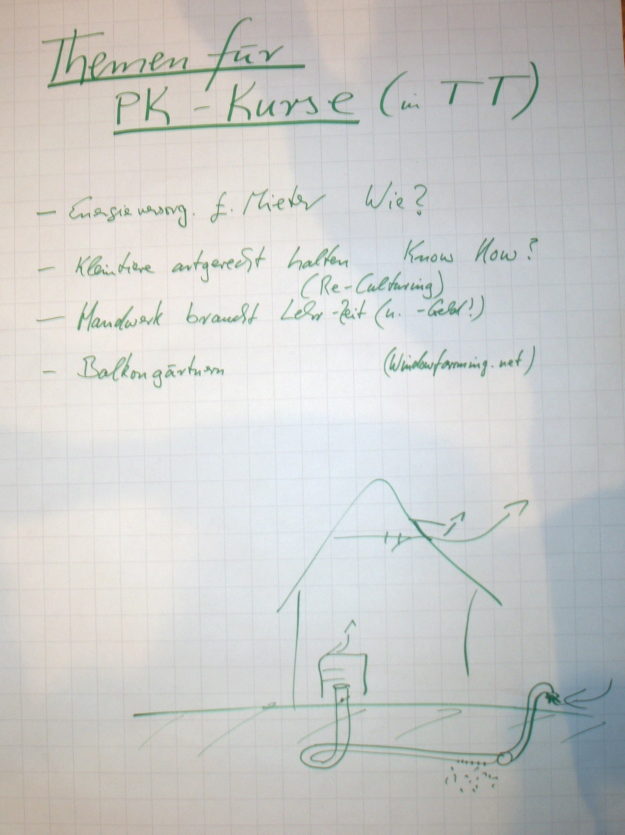 Themen für
PK - Kurse (in TT)
- Energieversorg. f. Mieter Wie?
- Kleintiere artgerecht halten Know How?
(Re-Culturing)
- Handwerk braucht Lehr-Zeit (u. -Geld!)
- Balkongärtnern (Windowfarming.net)